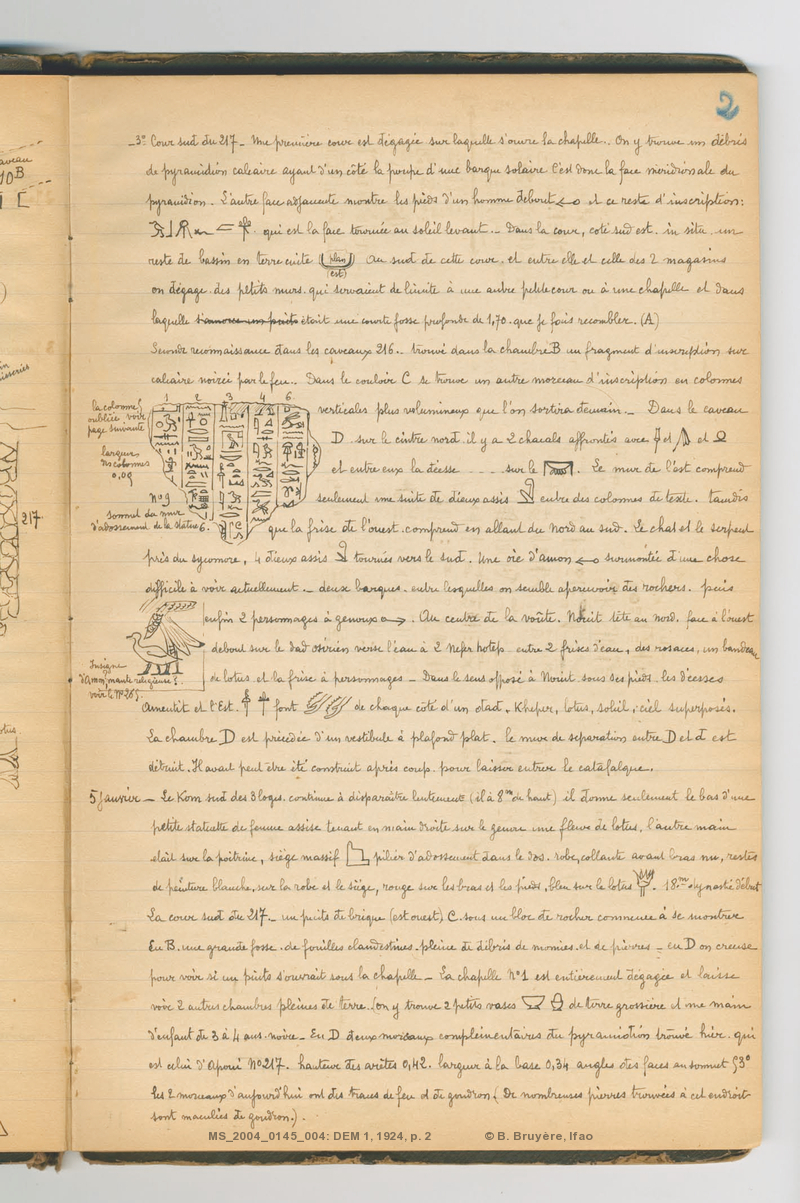 2
3° Cour sud du 217 – Une première cour est dégagée sur laquelle s'ouvre la chapelle. On y trouve un débris
de pyramidion calcaire ayant d'un côté la poupe d'une barque solaire. C'est donc la face méridionale du
pyramidion. L'autre face adjacente montre les pieds d'un homme debout et ce reste d'inscription:
qui est la face tournée au soleil levant. – Dans la cour, coté sud est. in situ. un
reste de bassin en terre cuite (plan) (est) Au sud de cette cour. et entre elle et celle des 2 magasins
on dégage des petits murs qui servaient de limite à une autre petite cour ou à une chapelle et dans
laquelle s'amorce un puits était une courte fosse profonde de 1,70. que je fais recombler. (A)
Seconde reconnaissance dans les caveaux 216. – trouvé dans la chambre B un fragment d'inscription sur
calcaire noirci par le feu. Dans le couloir C se trouve un autre morceau d'inscription en colonnes
1 2 3 4 6
la colonne 5
oubliée voir
page suivante
largeur
des colonnes
0,09
N° 9
sommet du mur
d'adossement de la statue 6.
verticales plus volumineux que l'on sortira demain. – Dans le caveau
D sur le cintre nord il y a 2 chacals affrontés avec et et
et entre eux la déesse . . . . sur le . Le mur de l'est comprend
seulement une suite de dieux assis entre des colonnes de texte. tandis
que la frise de l'ouest comprend en allant du Nord au sud. Le chat et le serpent
près du sycomore, 4 dieux assis tournés vers le sud. Une oie d'amon surmontée d'une chose
difficile à voir actuellement. – deux barques entre lesquelles on semble apercevoir des rochers. puis
enfin 2 personnages à genoux. Au centre de la voûte. Nouit tête au nord. face à l'ouest
debout sur le dad osirien verse l'eau à 2 Nefer hoteps entre 2 frises d'eau, des rosaces, un bandeau
Insigne
voir le N° 265.
de lotus et la frise à personnages – Dans le sens opposé à Nouit sous ses pieds les déesses
Amentit et l'Est. font de chaque côté d'un dad. Kheper, lotus, soleil, ciel superposés.
La chambre D est précédée d'un vestibule à plafond plat. le mur de séparation entre D et d est
détruit. Il avait peut être été construit après coup pour laisser entrer le catafalque.
5 Janvier – Le Kom sud des 3 loges continue à disparaître lentement (il a 8m de haut) il donne seulement le bas d'une
petite statuette de femme assise tenant en main droite sur le genou une fleur de lotus, l'autre main
était sur la poitrine, siège massif pilier d'adossement dans le dos. robe collante avant bras nu, restes
de peinture blanche, sur la robe et le siège, rouge sur les bras et les pieds, bleu sur le lotus. 18me dynastie début
La cour sud du 217 – un puits de brique (est ouest) C. sous un bloc de rocher commence à se montrer
En B. une grande fosse de fouilles clandestines. pleine de débris de momies et de pierres – en D on creuse
pour voir si un puits s'ouvrait sous la chapelle – La chapelle N° 1 est entièrement dégagée et laisse
voir 2 autres chambres pleines de terre. (on y trouve 2 petits vases de terre grossière et une main
d'enfant de 3 à 4 ans. noire – En D deux morceaux complémentaires du pyramidion trouvé hier. qui
est celui d'Apoui N° 217. hauteur des arêtes 0,42. largeur à la base 0,34 angles des faces au sommet 53°
les 2 morceaux d'aujourd'hui ont des traces de feu et de goudron. (De nombreuses pierres trouvées à cet endroit
sont maculées de goudron.).
217
MS_2004_0145_004: DEM 1, 1924, p. 2 © B. Bruyère, Ifao